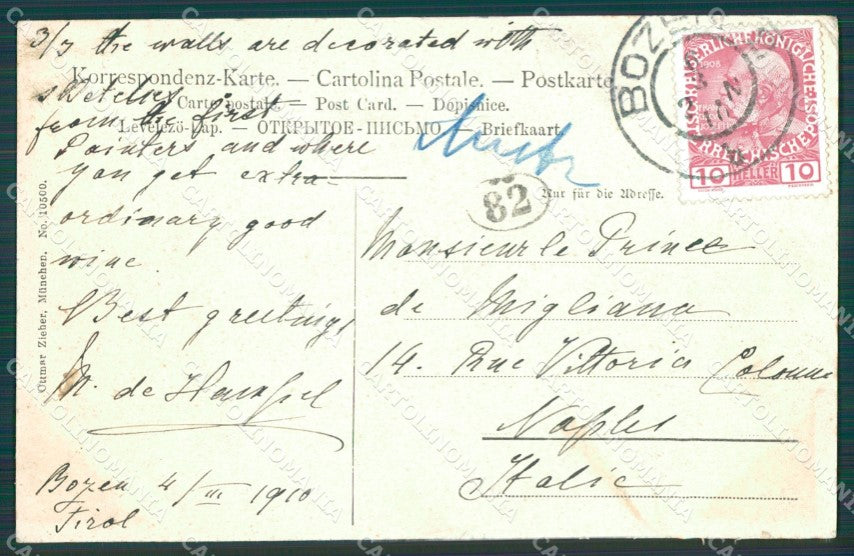 3/3 the walls are decorated with
Korrespondenz-Karte. — Cartolina Postale. — Postkarte
sketches
Carte postale. — Post Card. — Dopisnice.
from the first
Levelező-Lap. — ОТКРЫТОЕ-ПИСЬМО — Briefkaart
Painters and where
you get extra-
ordinary good
wine.
Best greetings,
M. de
Bozen 4/III 1910
Tirol
Ottmar Zieher, München. No. 10500.
82
Nur für die Adresse.
Monsieur le Prince
de Migliano
14. Rue Vittoria Colonna
Naples
Italie
BOZEN
1908
10 HELLER 10
CARTOLINOMANIA